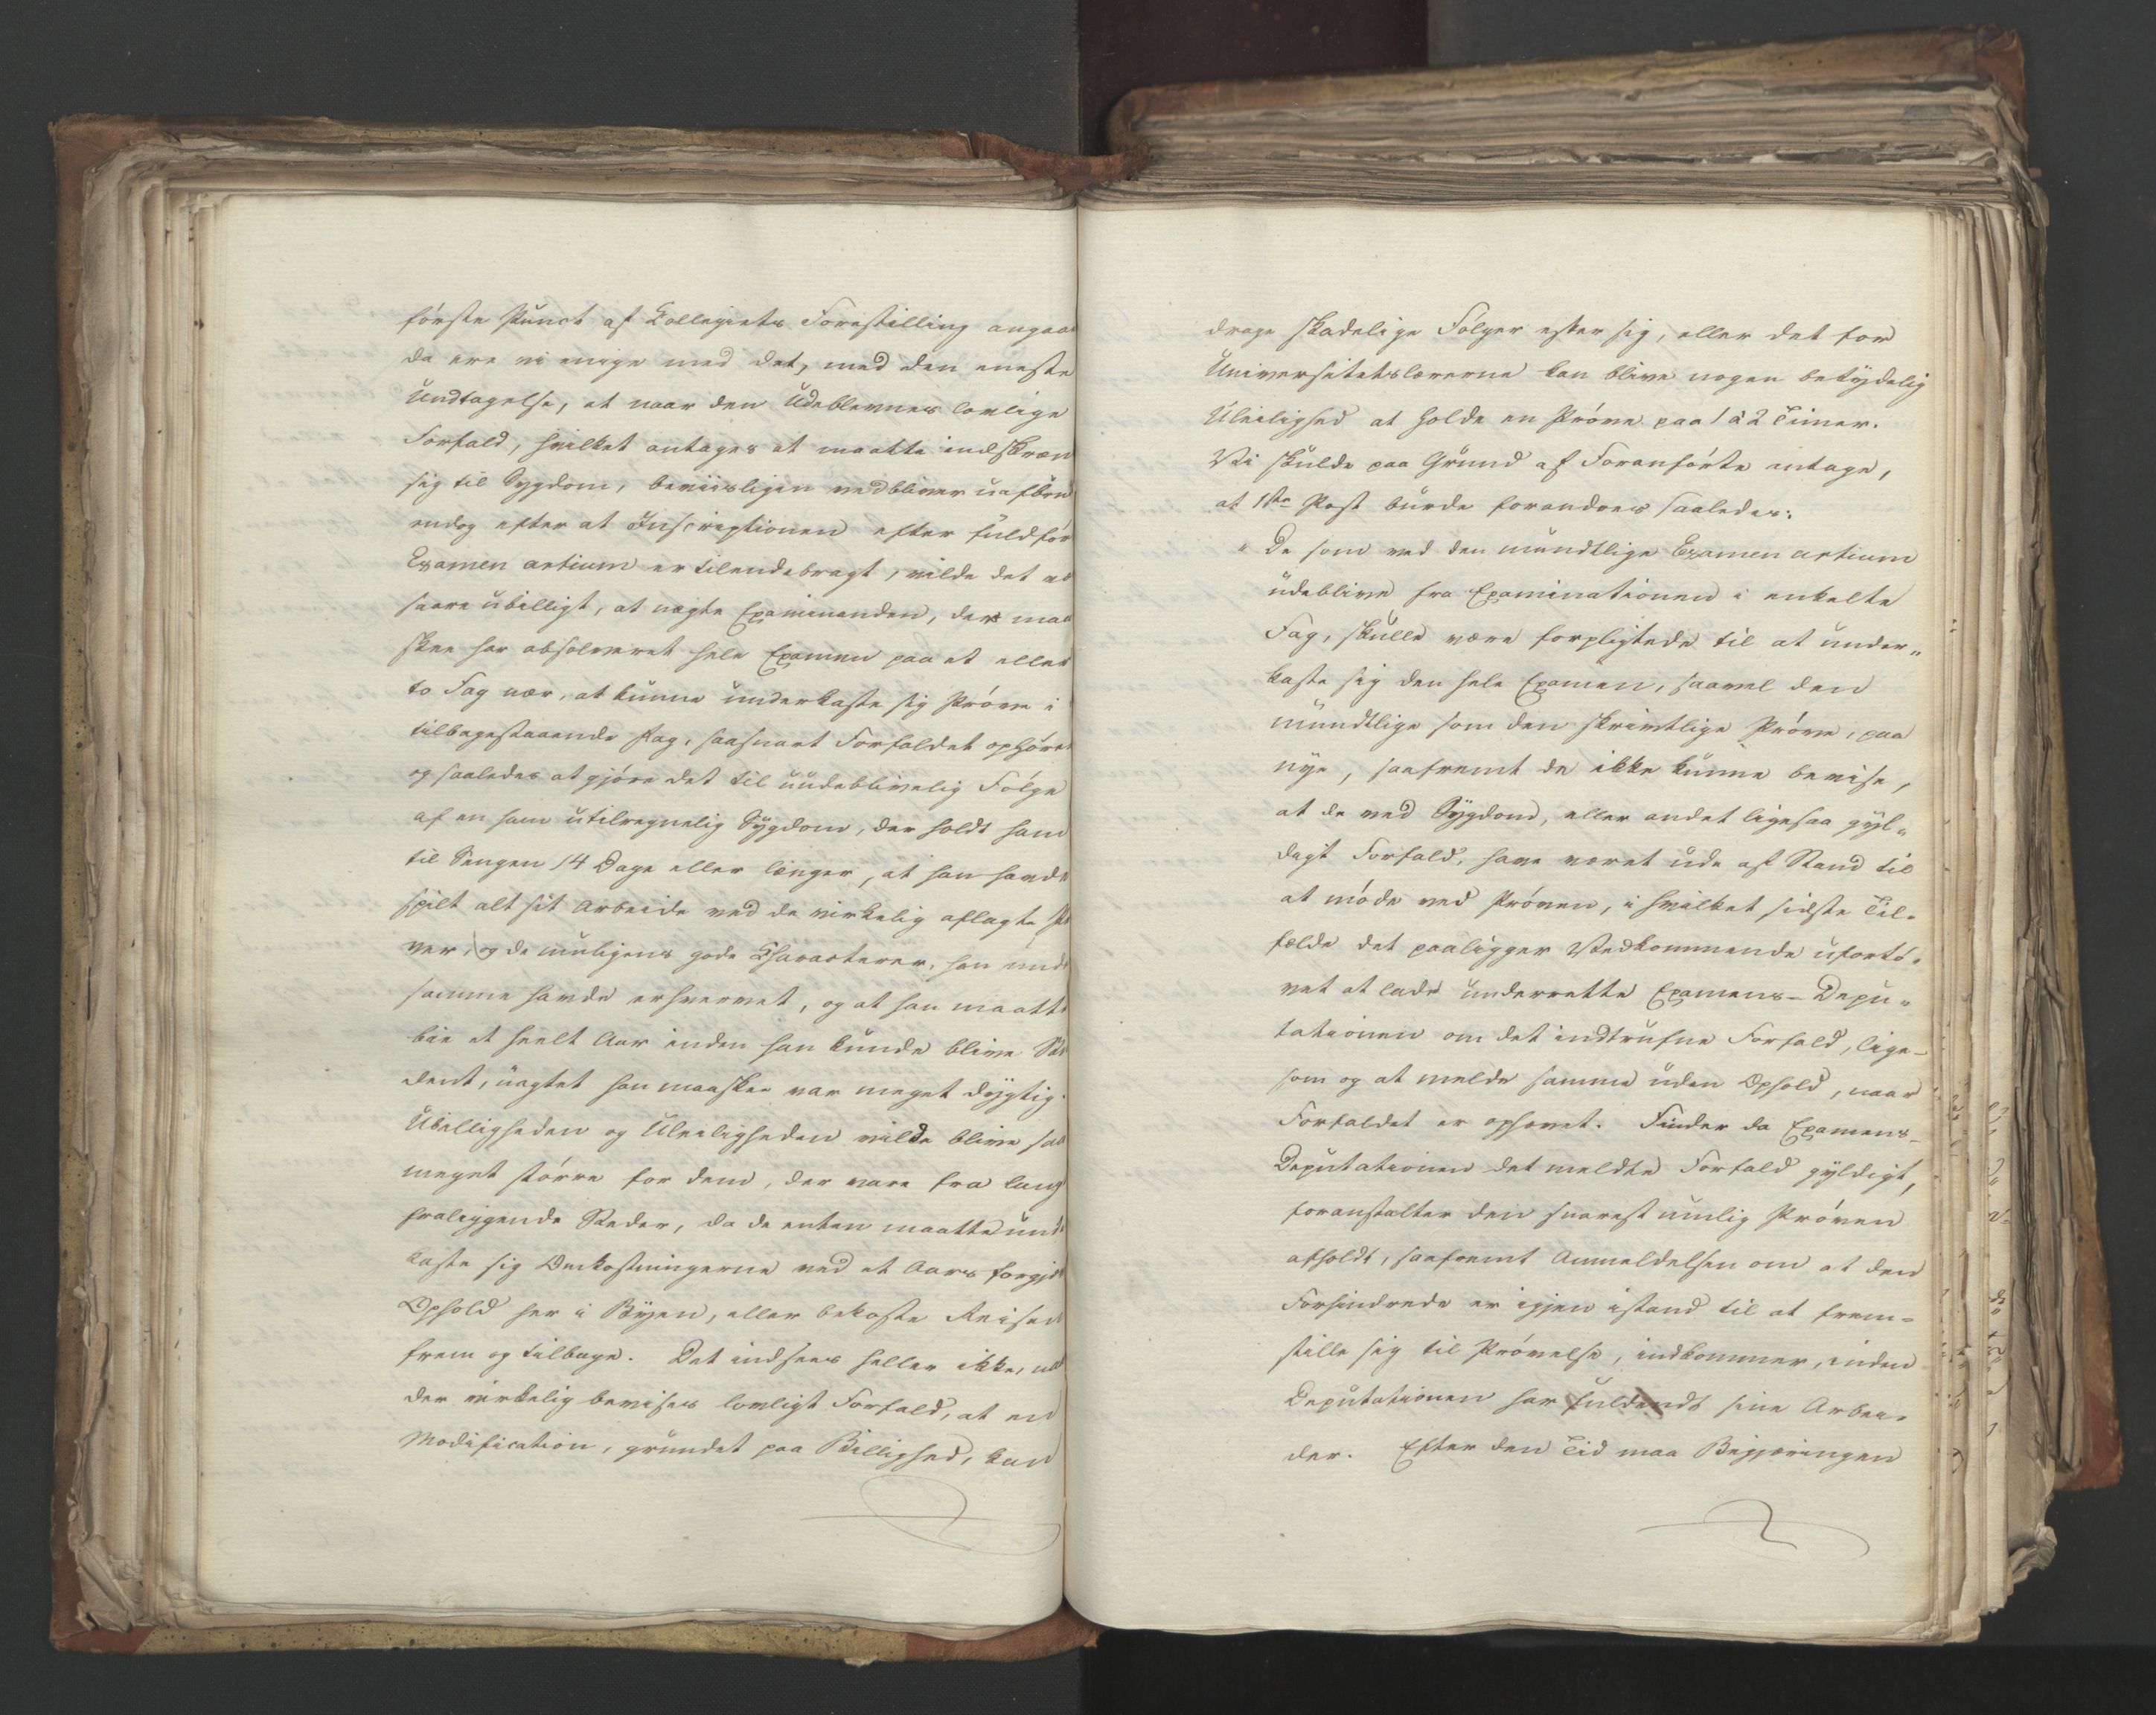 første Punct af Collegiets Forestilling angaa
da ere vi enige med det, med den eneste
Undtagelse, at naar den Udeblevnes lovlige
Forfald, hvilket antages at maatte indskræn
sig til Sygdom, beviisligen vedbliver uafbru
endog efter at Inscriptionen efter fuldfør
Examen artium er tilendebragt, vilde det
saare ubilligt, at nægte Examinanden, der maa
skee har absolveret hele Examen paa et eller
to Fag nær, at kunne underkaste sig Prøve i
tilbagestaaende Fag, saasnart Forfaldet ophører
og saaledes at gjøre det til uudeblivelig Følge
af en ham utilregnelig Sygdom, der holdt ham
til Sengen 14 Dage eller længer, at han havde
spilt alt sit Arbeide ved de virkelig aflagte Prø
ver, og de muligens gode Characterer, han ved
samme havde erhvervet, og at han maatte
bie et heelt Aar inden han kunde blive Stu
dent, uagtet han maaskee var meget dygtig.
Ubilligheden og Uleiligheden vilde blive saa
meget større for dem, der vare fra lang
fraliggende Steder, da de enten maatte under
kaste sig Omkostningerne ved et Aars forgje
Ophold her i Byen, eller bekoste Reisen
frem og tilbage. Det indsees heller ikke,
der virkelig bevises lovligt Forfald, at en
Modification, grundet paa Billighed, kan
drage skadelige Følger efter sig, eller det for
Universitetslærerne kan blive nogen betydelig
Uleilighed at holde en Prøve paa 1 à 2 Timer.
Vi skulde paa Grund af Foranførte antage,
at 1ste Post burde forandres saaledes:
" De som ved den mundtlige Examen artium
udeblive fra Examinationen i enkelte
Fag, skulle være forpligtede til at under„
kaste sig den hele Examen, saavel den
mundtlige som den skrivtlige Prøve, paa
nye, saafremt de ikke kunne bevise,
at de ved Sygdom, eller andet ligesaa gyl„
digt Forfald, have været ude af Stand til
at møde ved Prøven, i hvilket sidste Til„
fælde det paaligger Vedkommende ufortø„
vet at lade underrette Examens-Depu„
tationen om det indtrufne Forfald, lige-
som og at melde samme uden Ophold, naar
Forfaldet er ophævet. Finder da Examens-
Deputationen det meldte Forfald gyldigt,
foranstalter den snarest mulig Prøven
afholdt, saafremt Anmeldelsen om at den
Forhindrede er igjen istand til at frem-
stille sig til Prøvelse, indkommer, inden
Deputationen har fuldendt sine Arbei„
der. Efter den Tid maa Begjæringen